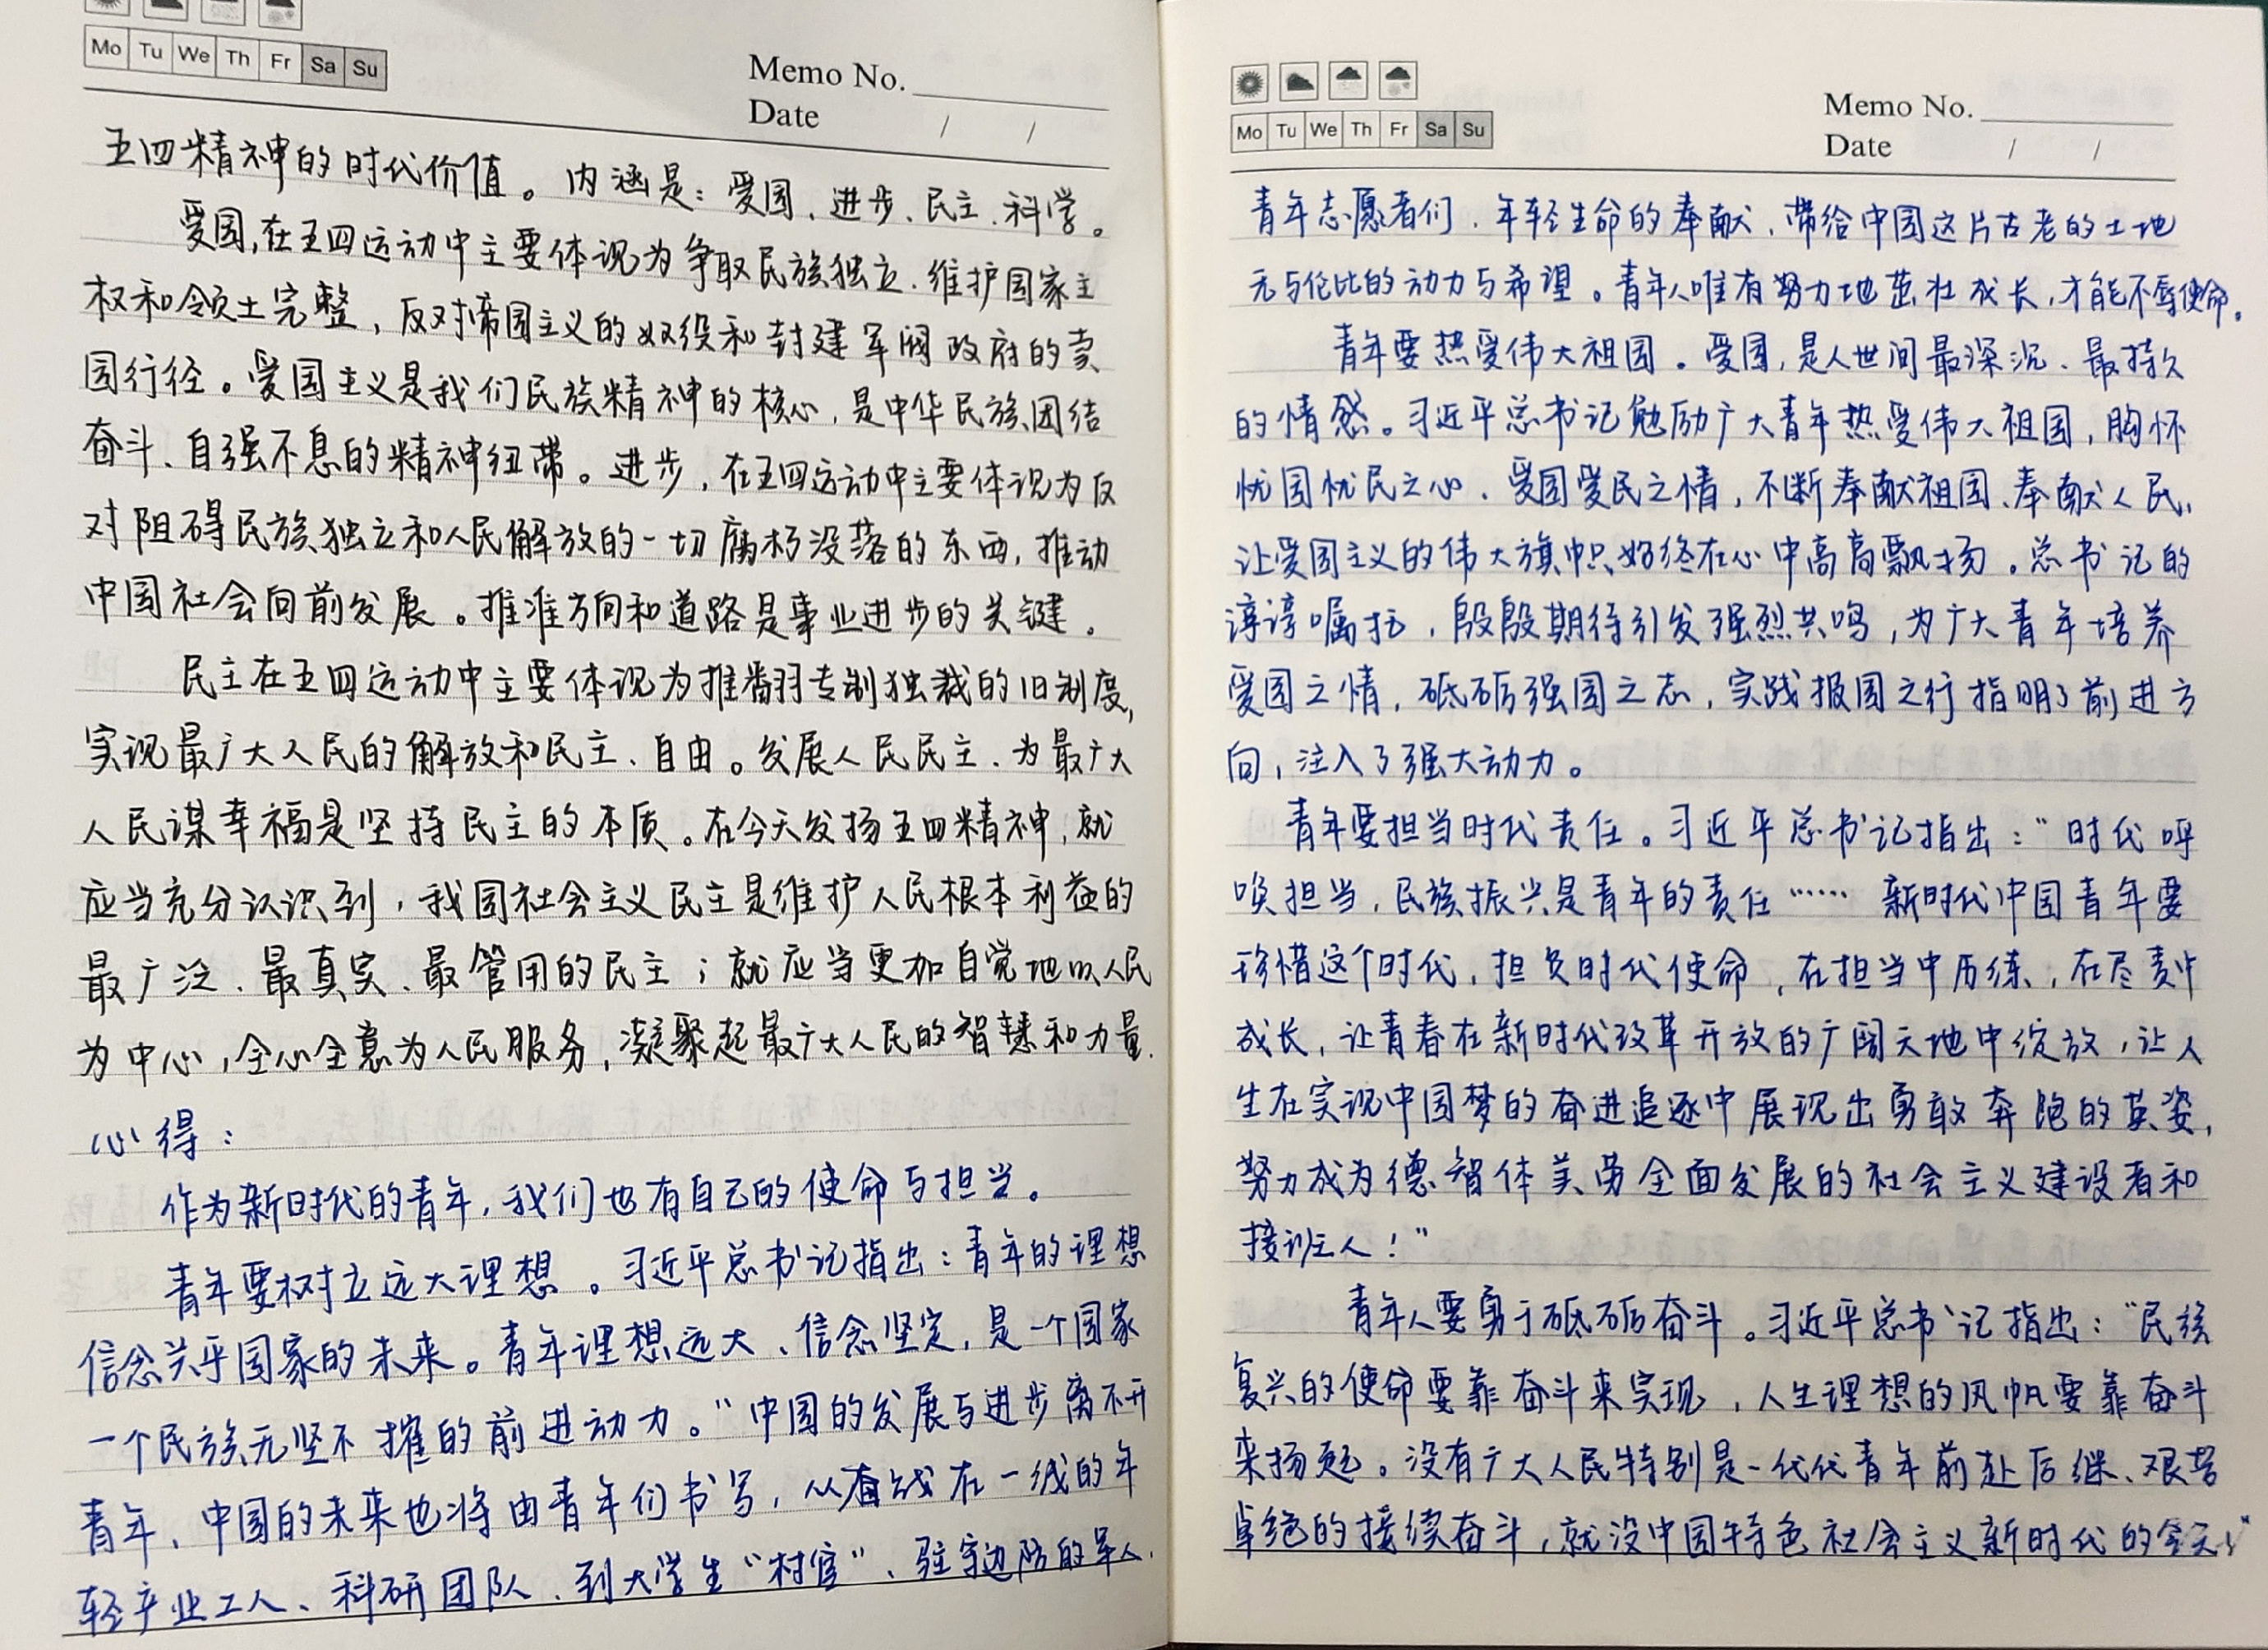 Mo Tu We Th Fr Sa Su
Memo No.
Date / /
五四精神的时代价值。内涵是：爱国、进步、民主、科学。
爱国,在五四运动中主要体现为争取民族独立、维护国家主
权和领土完整，反对帝国主义的奴役和封建军阀政府的卖
国行径。爱国主义是我们民族精神的核心，是中华民族团结
奋斗、自强不息的精神纽带。进步，在五四运动中主要体现为反
对阻碍民族独立和人民解放的一切腐朽没落的东西，推动
中国社会向前发展。推准方向和道路是事业进步的关键。
民主在五四运动中主要体现为推翻专制独裁的旧制度，
实现最广大人民的解放和民主、自由。发展人民民主、为最广大
人民谋幸福是坚持民主的本质。在今天发扬五四精神，就
应当充分认识到，我国社会主义民主是维护人民根本利益的
最广泛、最真实、最管用的民主；就应当更加自觉地以人民
为中心，全心全意为人民服务，凝聚起最广大人民的智慧和力量.
心得：
作为新时代的青年，我们也有自己的使命与担当。
青年要树立远大理想。习近平总书记指出：青年的理想
信念关乎国家的未来。青年理想远大、信念坚定，是一个国家
一个民族无坚不摧的前进动力。"中国的发展与进步离不开
青年、中国的未来也将由青年们书写，从奋战在一线的年
轻产业工人、科研团队、到大学生"村官"、驻守边防的军人、
Mo Tu We Th Fr Sa Su
Memo No.
Date / /
青年志愿者们、年轻生命的奉献、带给中国这片古老的土地
无与伦比的动力与希望。青年人唯有努力地茁壮成长，才能不辱使命。
青年要热爱伟大祖国。爱国，是人世间最深沉、最持久
的情感。习近平总书记勉励广大青年热爱伟大祖国，胸怀
忧国忧民之心、爱国爱民之情，不断奉献祖国、奉献人民，
让爱国主义的伟大旗帜始终在心中高高飘扬。总书记的
谆谆嘱托，殷殷期待引发强烈共鸣，为广大青年培养
爱国之情，砥砺强国之志，实践报国之行指明了前进方
向，注入了强大动力。
青年要担当时代责任。习近平总书记指出："时代呼
唤担当，民族振兴是青年的责任……新时代中国青年要
珍惜这个时代，担负时代使命，在担当中历练，在尽责中
成长，让青春在新时代改革开放的广阔天地中绽放，让人
生在实现中国梦的奋进追逐中展现出勇敢奔跑的英姿，
努力成为德智体美劳全面发展的社会主义建设者和
接班人！"
青年人要勇于砥砺奋斗。习近平总书记指出："民族
复兴的使命要靠奋斗来实现，人生理想的风帆要靠奋斗
来扬起。没有广大人民特别是一代代青年前赴后继、艰苦
卓绝的接续奋斗，就没中国特色社会主义新时代的今天"